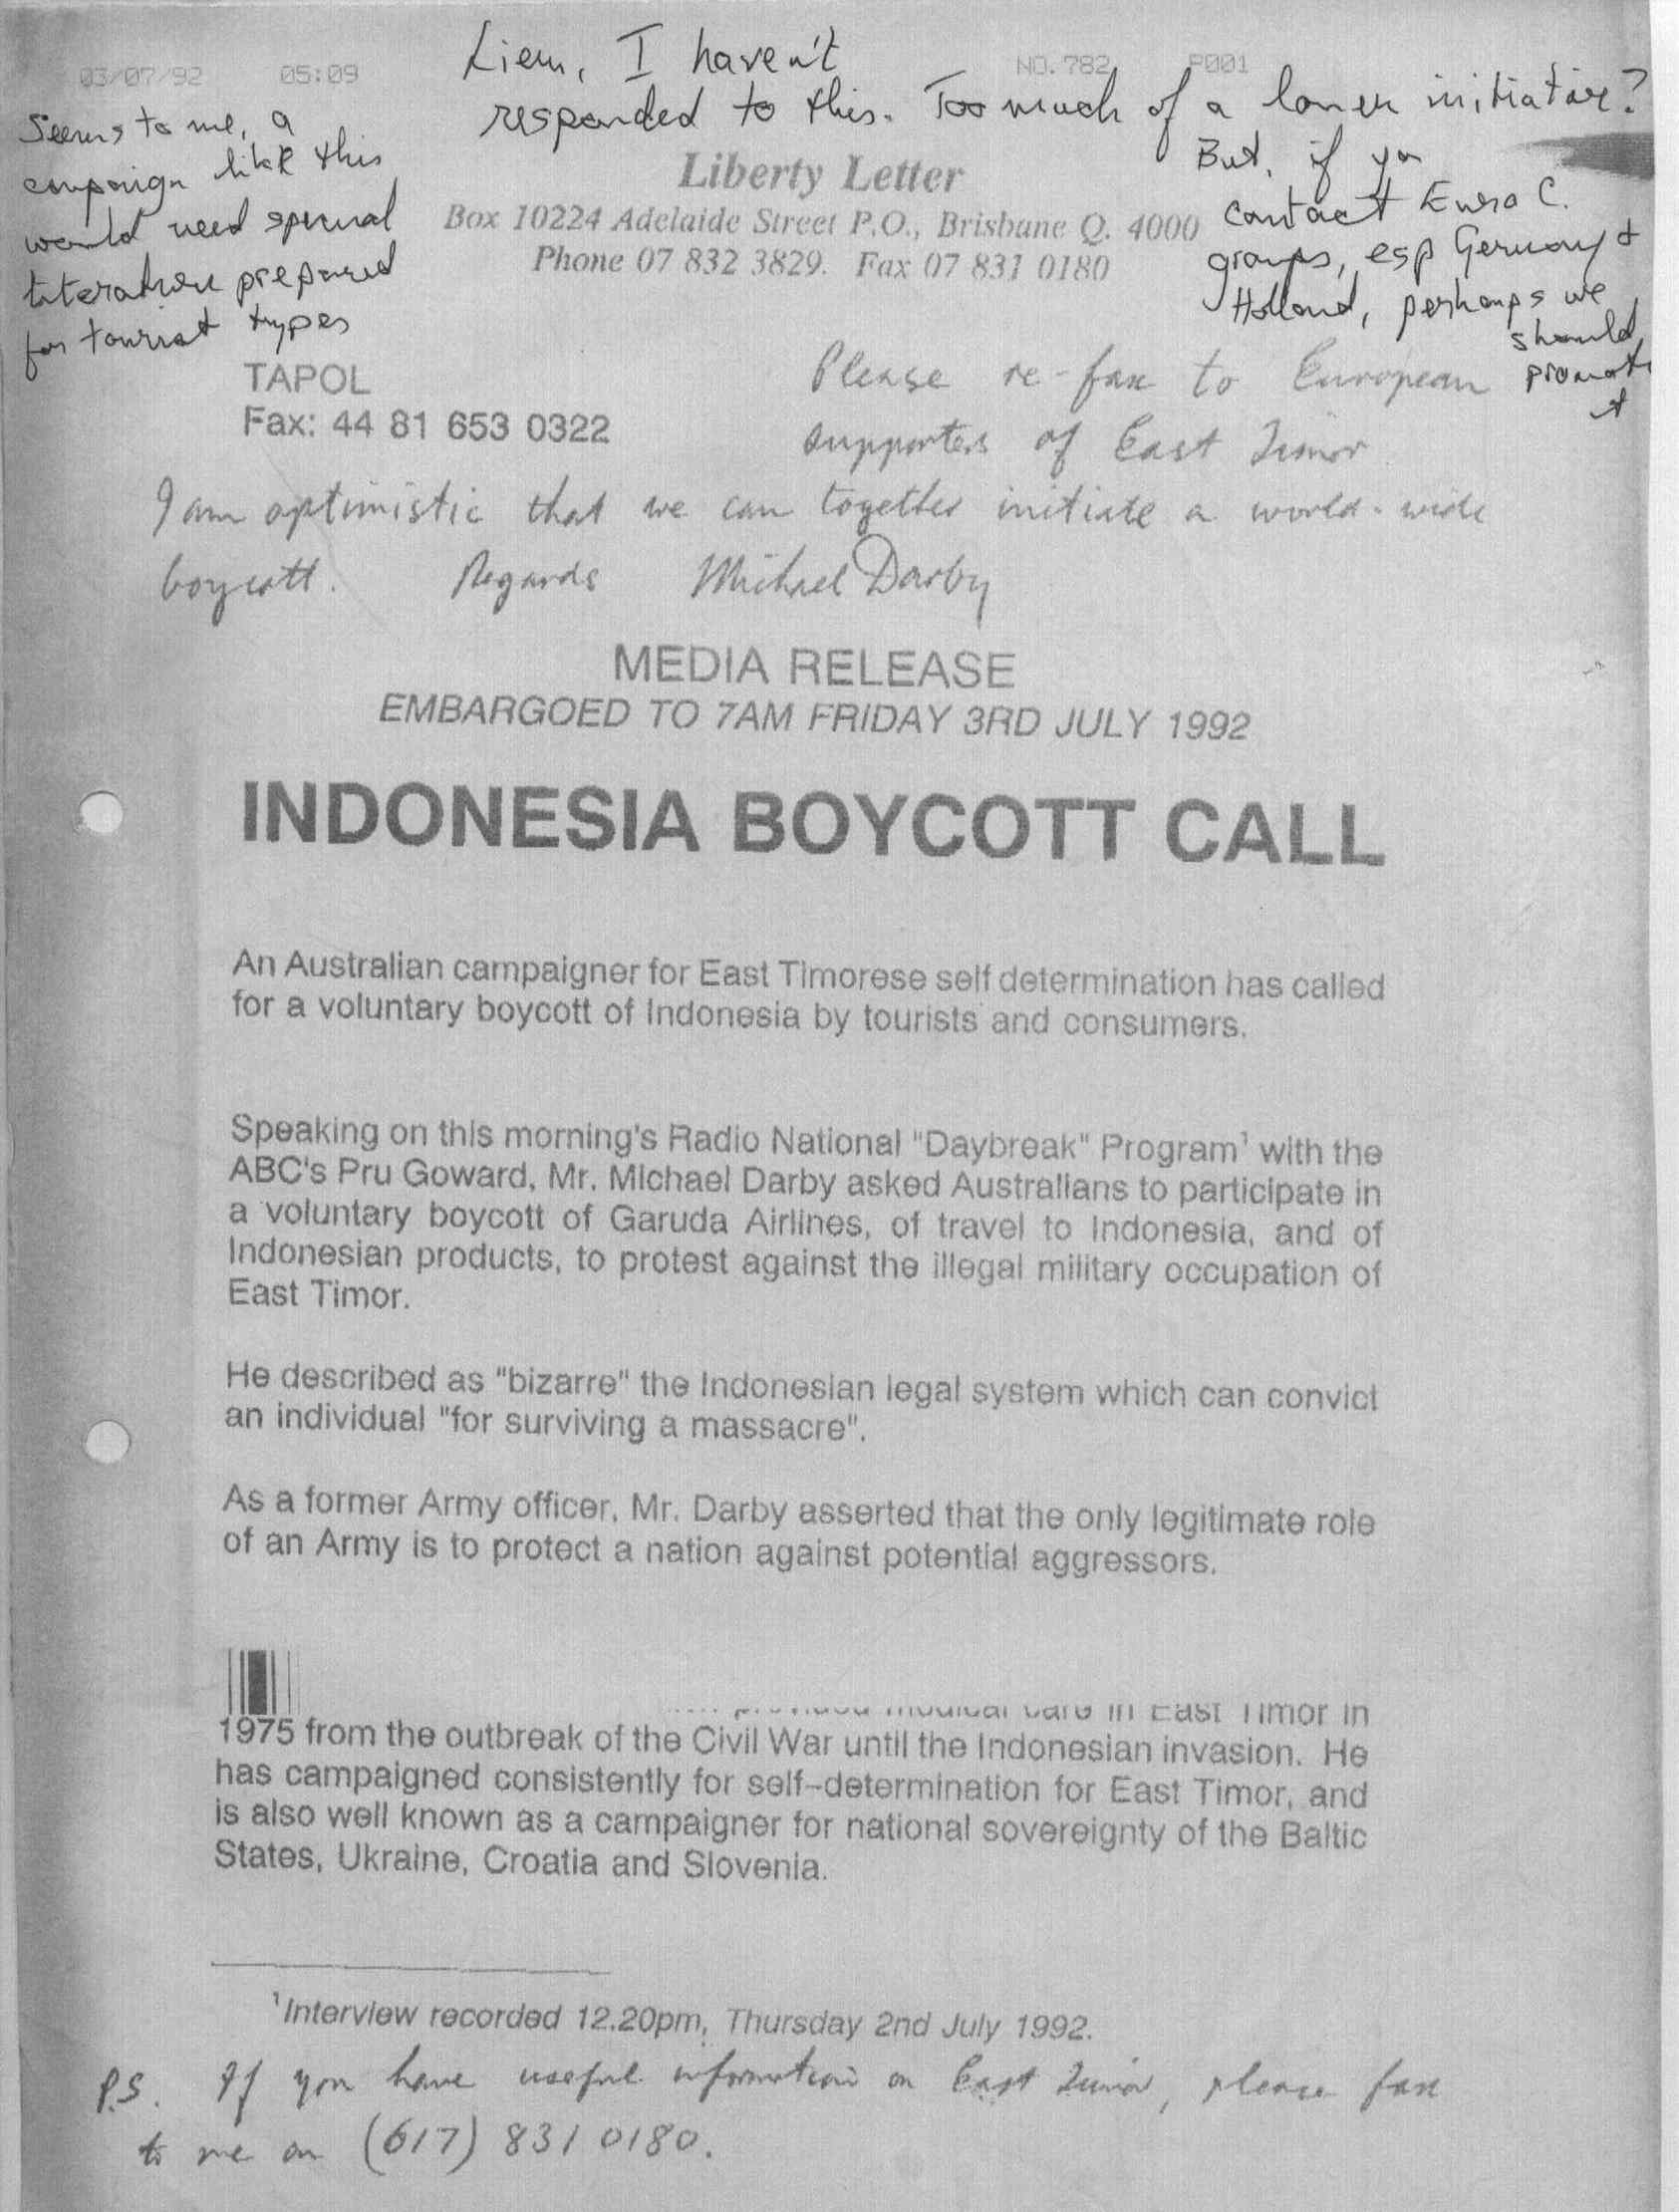 03/07/92 05:09 NO. 782 P001
Liem, I haven't
responded to this. Too much of a loner initiative?
But, if you
contact Euro C.
groups, esp Germany &
Holland, perhaps we
should
promote
it
Seems to me, a
campaign like this
would need special
literature prepared
for tourist types
Liberty Letter
Box 10224 Adelaide Street P.O., Brisbane Q. 4000
Phone 07 832 3829. Fax 07 831 0180
TAPOL
Fax: 44 81 653 0322
Please re-fax to European
supporters of East Timor
I am optimistic that we can together initiate a world-wide
boycott. Regards Michael Darby
MEDIA RELEASE
EMBARGOED TO 7AM FRIDAY 3RD JULY 1992
INDONESIA BOYCOTT CALL
An Australian campaigner for East Timorese self determination has called
for a voluntary boycott of Indonesia by tourists and consumers.
Speaking on this morning's Radio National "Daybreak" Program¹ with the
ABC's Pru Goward, Mr. Michael Darby asked Australians to participate in
a voluntary boycott of Garuda Airlines, of travel to Indonesia, and of
Indonesian products, to protest against the illegal military occupation of
East Timor.
He described as "bizarre" the Indonesian legal system which can convict
an individual "for surviving a massacre".
As a former Army officer, Mr. Darby asserted that the only legitimate role
of an Army is to protect a nation against potential aggressors.
provided medical care in East Timor in
1975 from the outbreak of the Civil War until the Indonesian invasion. He
has campaigned consistently for self-determination for East Timor, and
is also well known as a campaigner for national sovereignty of the Baltic
States, Ukraine, Croatia and Slovenia.
¹Interview recorded 12.20pm, Thursday 2nd July 1992.
P.S. If you have useful information on East Timor, please fax
to me on (617) 831 0180.